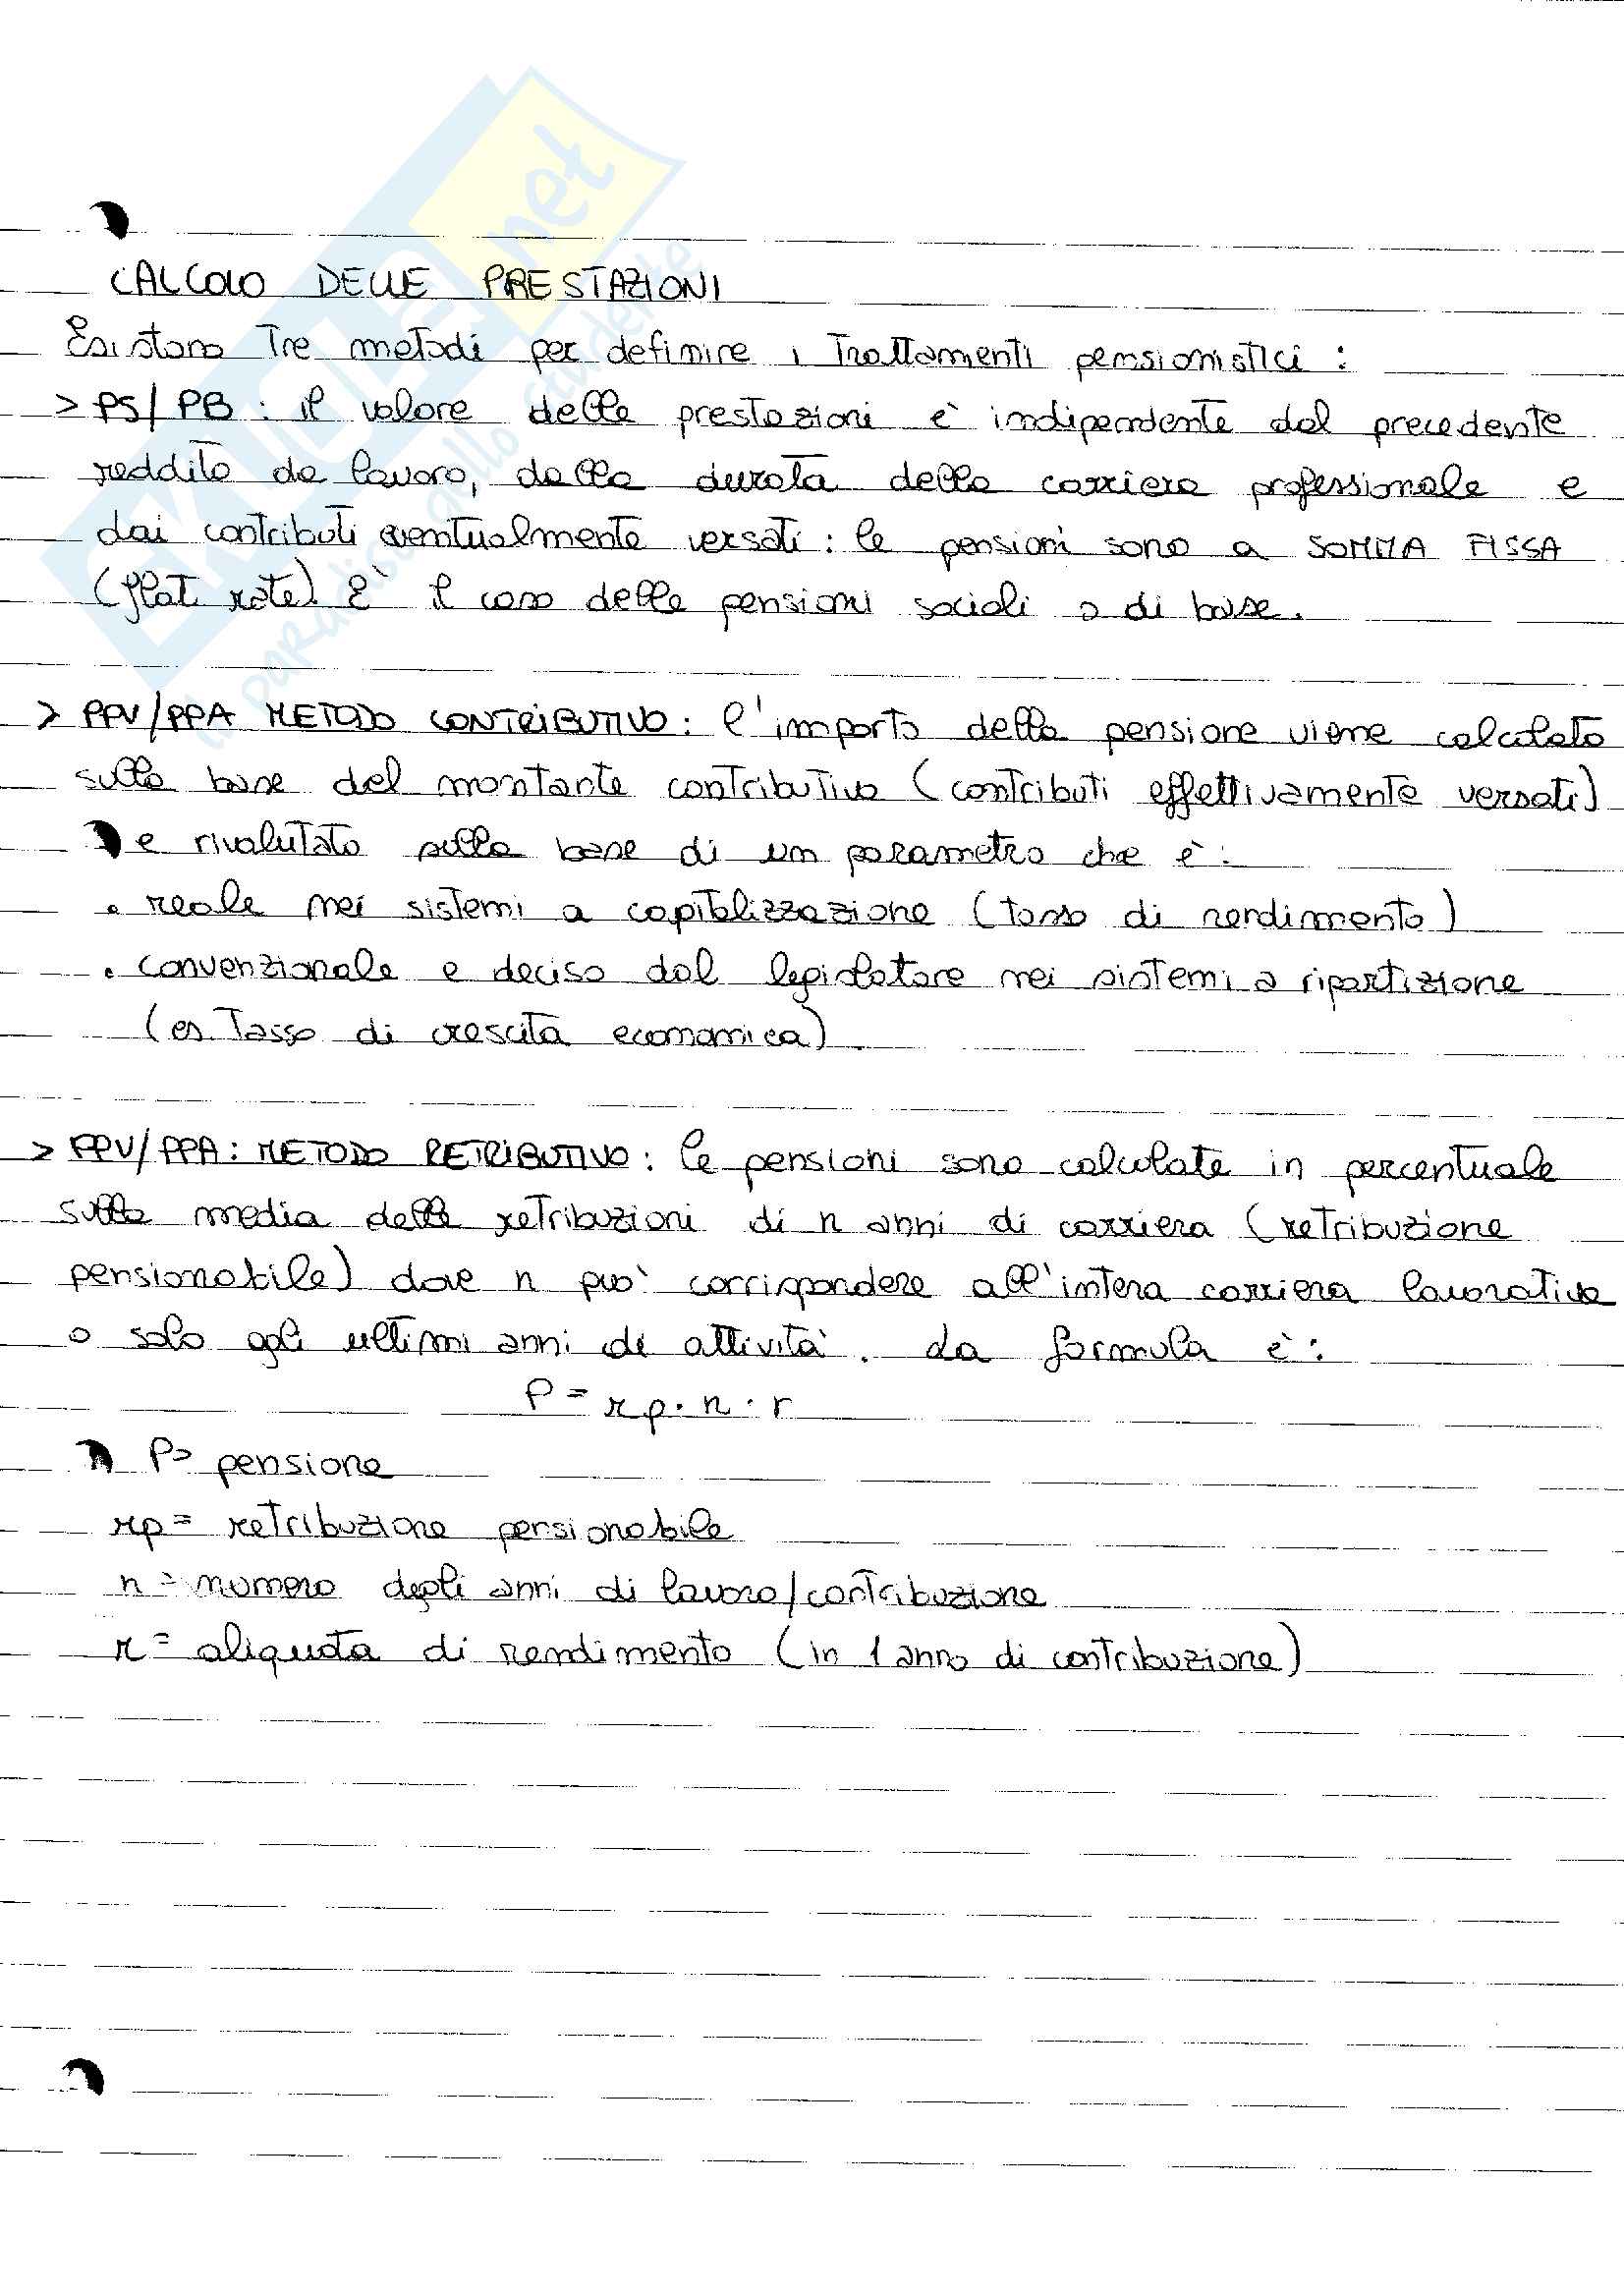 CALCOLO DELLE PRESTAZIONI
Esistono Tre metodi per definire i Trattamenti pensionistici :
> PS/PB : il valore delle prestazioni è indipendente dal precedente
reddito da lavoro, dalla durata della carriera professionale e
dai contributi eventualmente versati : le pensioni sono a SOMMA FISSA
(flat rate). E' il caso delle pensioni sociali o di base.
> PPV/PPA METODO CONTRIBUTIVO : l'importo della pensione viene calcolato
sulla base del montante contributivo (contributi effettivamente versati)
e rivalutato sulla base di un parametro che è :
• reale nei sistemi a capitlizzazione (tasso di rendimento)
• convenzionale e deciso dal legislatore nei sistemi a ripartizione
(es. Tasso di crescita economica)
> PPV/PPA : METODO RETRIBUTIVO : le pensioni sono calcolate in percentuale
sulla media delle retribuzioni di n anni di carriera (retribuzione
pensionabile) dove n può corrispondere all'intera carriera lavorativa
o solo agli ultimi anni di attività. La formula è :
P = rp · n · r
P= pensione
rp = retribuzione pensionabile
n = numero degli anni di lavoro/contribuzione
r = aliquota di rendimento (in 1 anno di contribuzione)
net
il paradiso dello studente